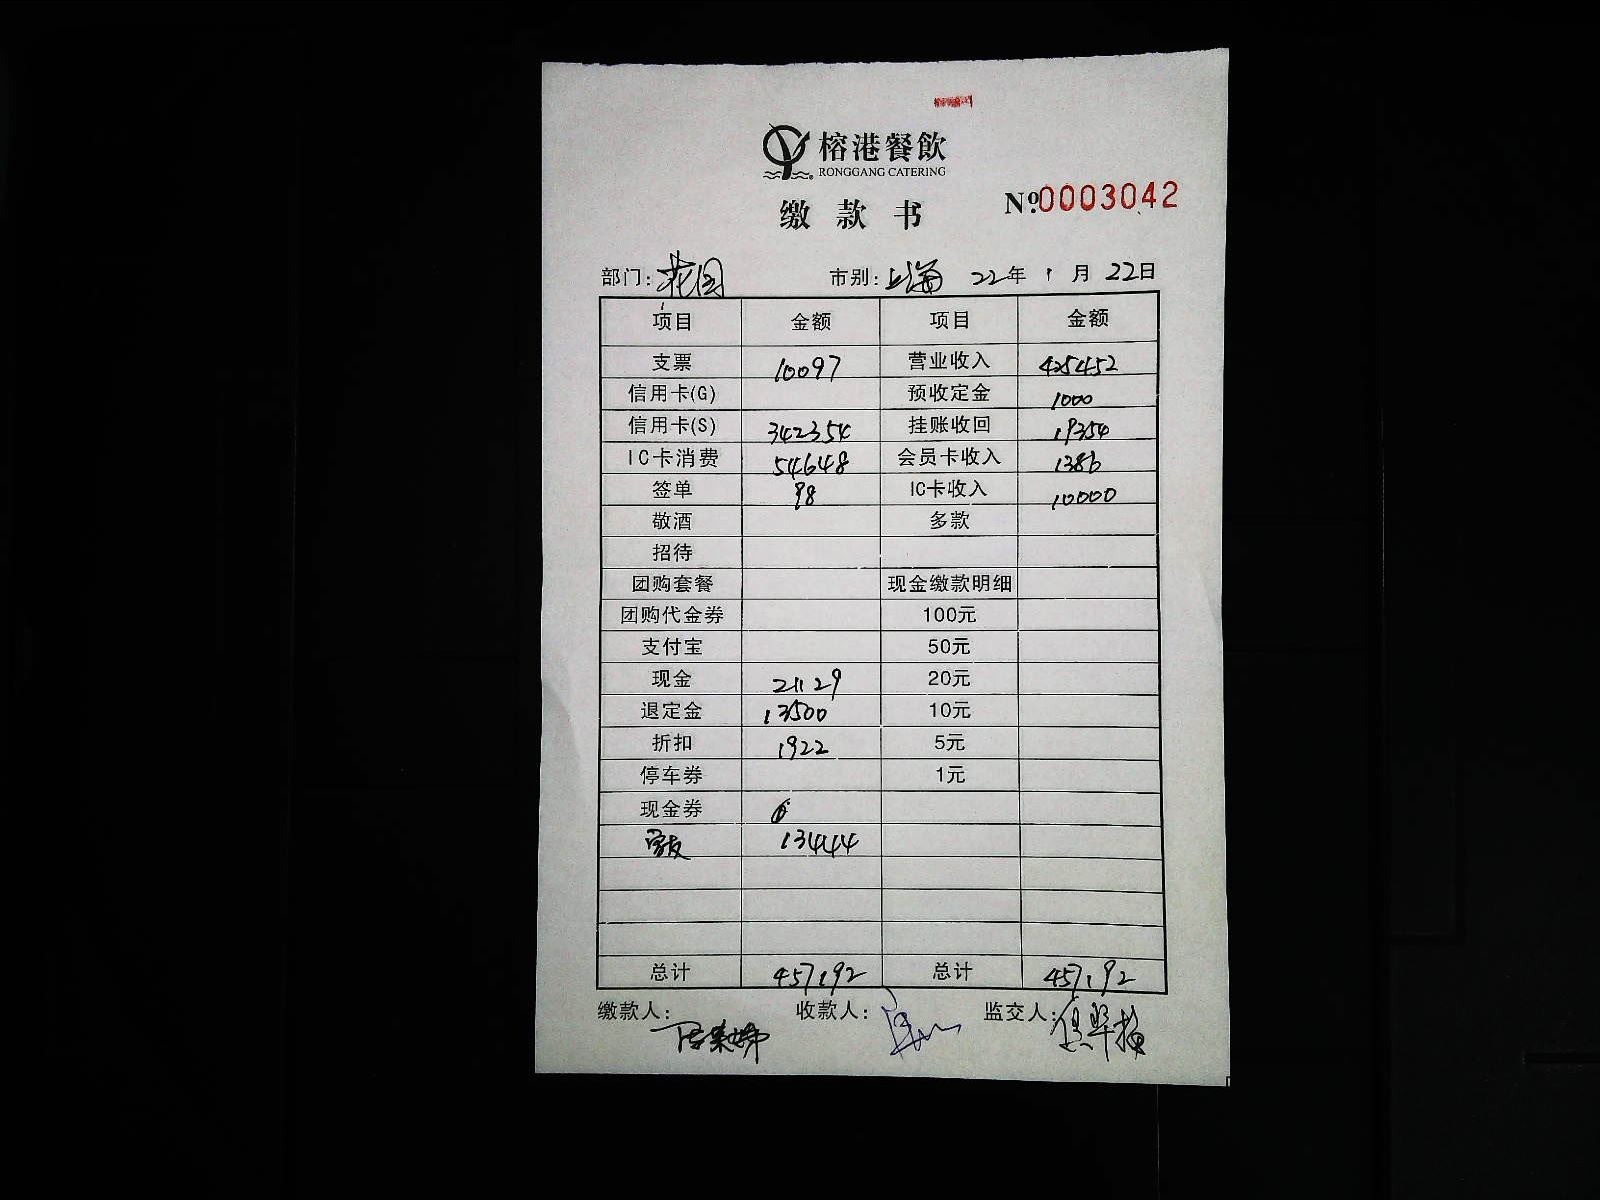 榕港餐飲
RONGGANG CATERING
缴款书
№0003042
部门: 花园 市别: 上海 22年 1月 22日
项目 金额 项目 金额
支票 10097 营业收入 425452
信用卡(G) 预收定金 1000
信用卡(S) 342354 挂账收回 19354
IC卡消费 54648 会员卡收入 1386
签单 98 IC卡收入 10000
敬酒 多款
招待
团购套餐 现金缴款明细
团购代金券 100元
支付宝 50元
现金 21129 20元
退定金 13500 10元
折扣 1922 5元
停车券 1元
现金券
13444
总计 457192 总计 457192
缴款人: 收款人: 监交人: